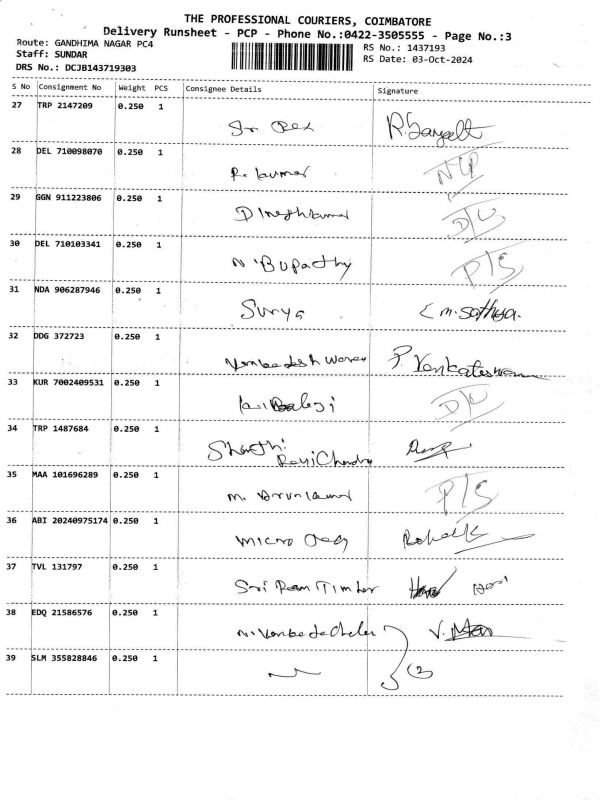 THE PROFESSIONAL COURIERS, COIMBATORE
Delivery Runsheet - PCP - Phone No.:0422-3505555 - Page No.:3
Route: GANDHIMA NAGAR PC4
RS No.: 1437193
Staff: SUNDAR
RS Date: 03-Oct-2024
DRS No.: DCJB143719303
S No Consignment No Weight PCS Consignee Details Signature
27 TRP 2147209 0.250 1
28 DEL 710098070 0.250 1
R. kumar
29 GGN 911223806 0.250 1
Dineshkumar D/C
30 DEL 710103341 0.250 1
N. Bupathy P/S
31 NDA 906287946 0.250 1
Surya m. sathya.
32 DDG 372723 0.250 1
P. Venkateswaran
33 KUR 7002409531 0.250 1
D/C
34 TRP 1487684 0.250 1
Shanthi
Ravi Chandra
35 MAA 101696289 0.250 1
m. Arunkumar P/S
36 ABI 20240975174 0.250 1
micro
37 TVL 131797 0.250 1
Sri Ram Timber
38 EDQ 21586576 0.250 1
V.
39 SLM 355828846 0.250 1
(2)